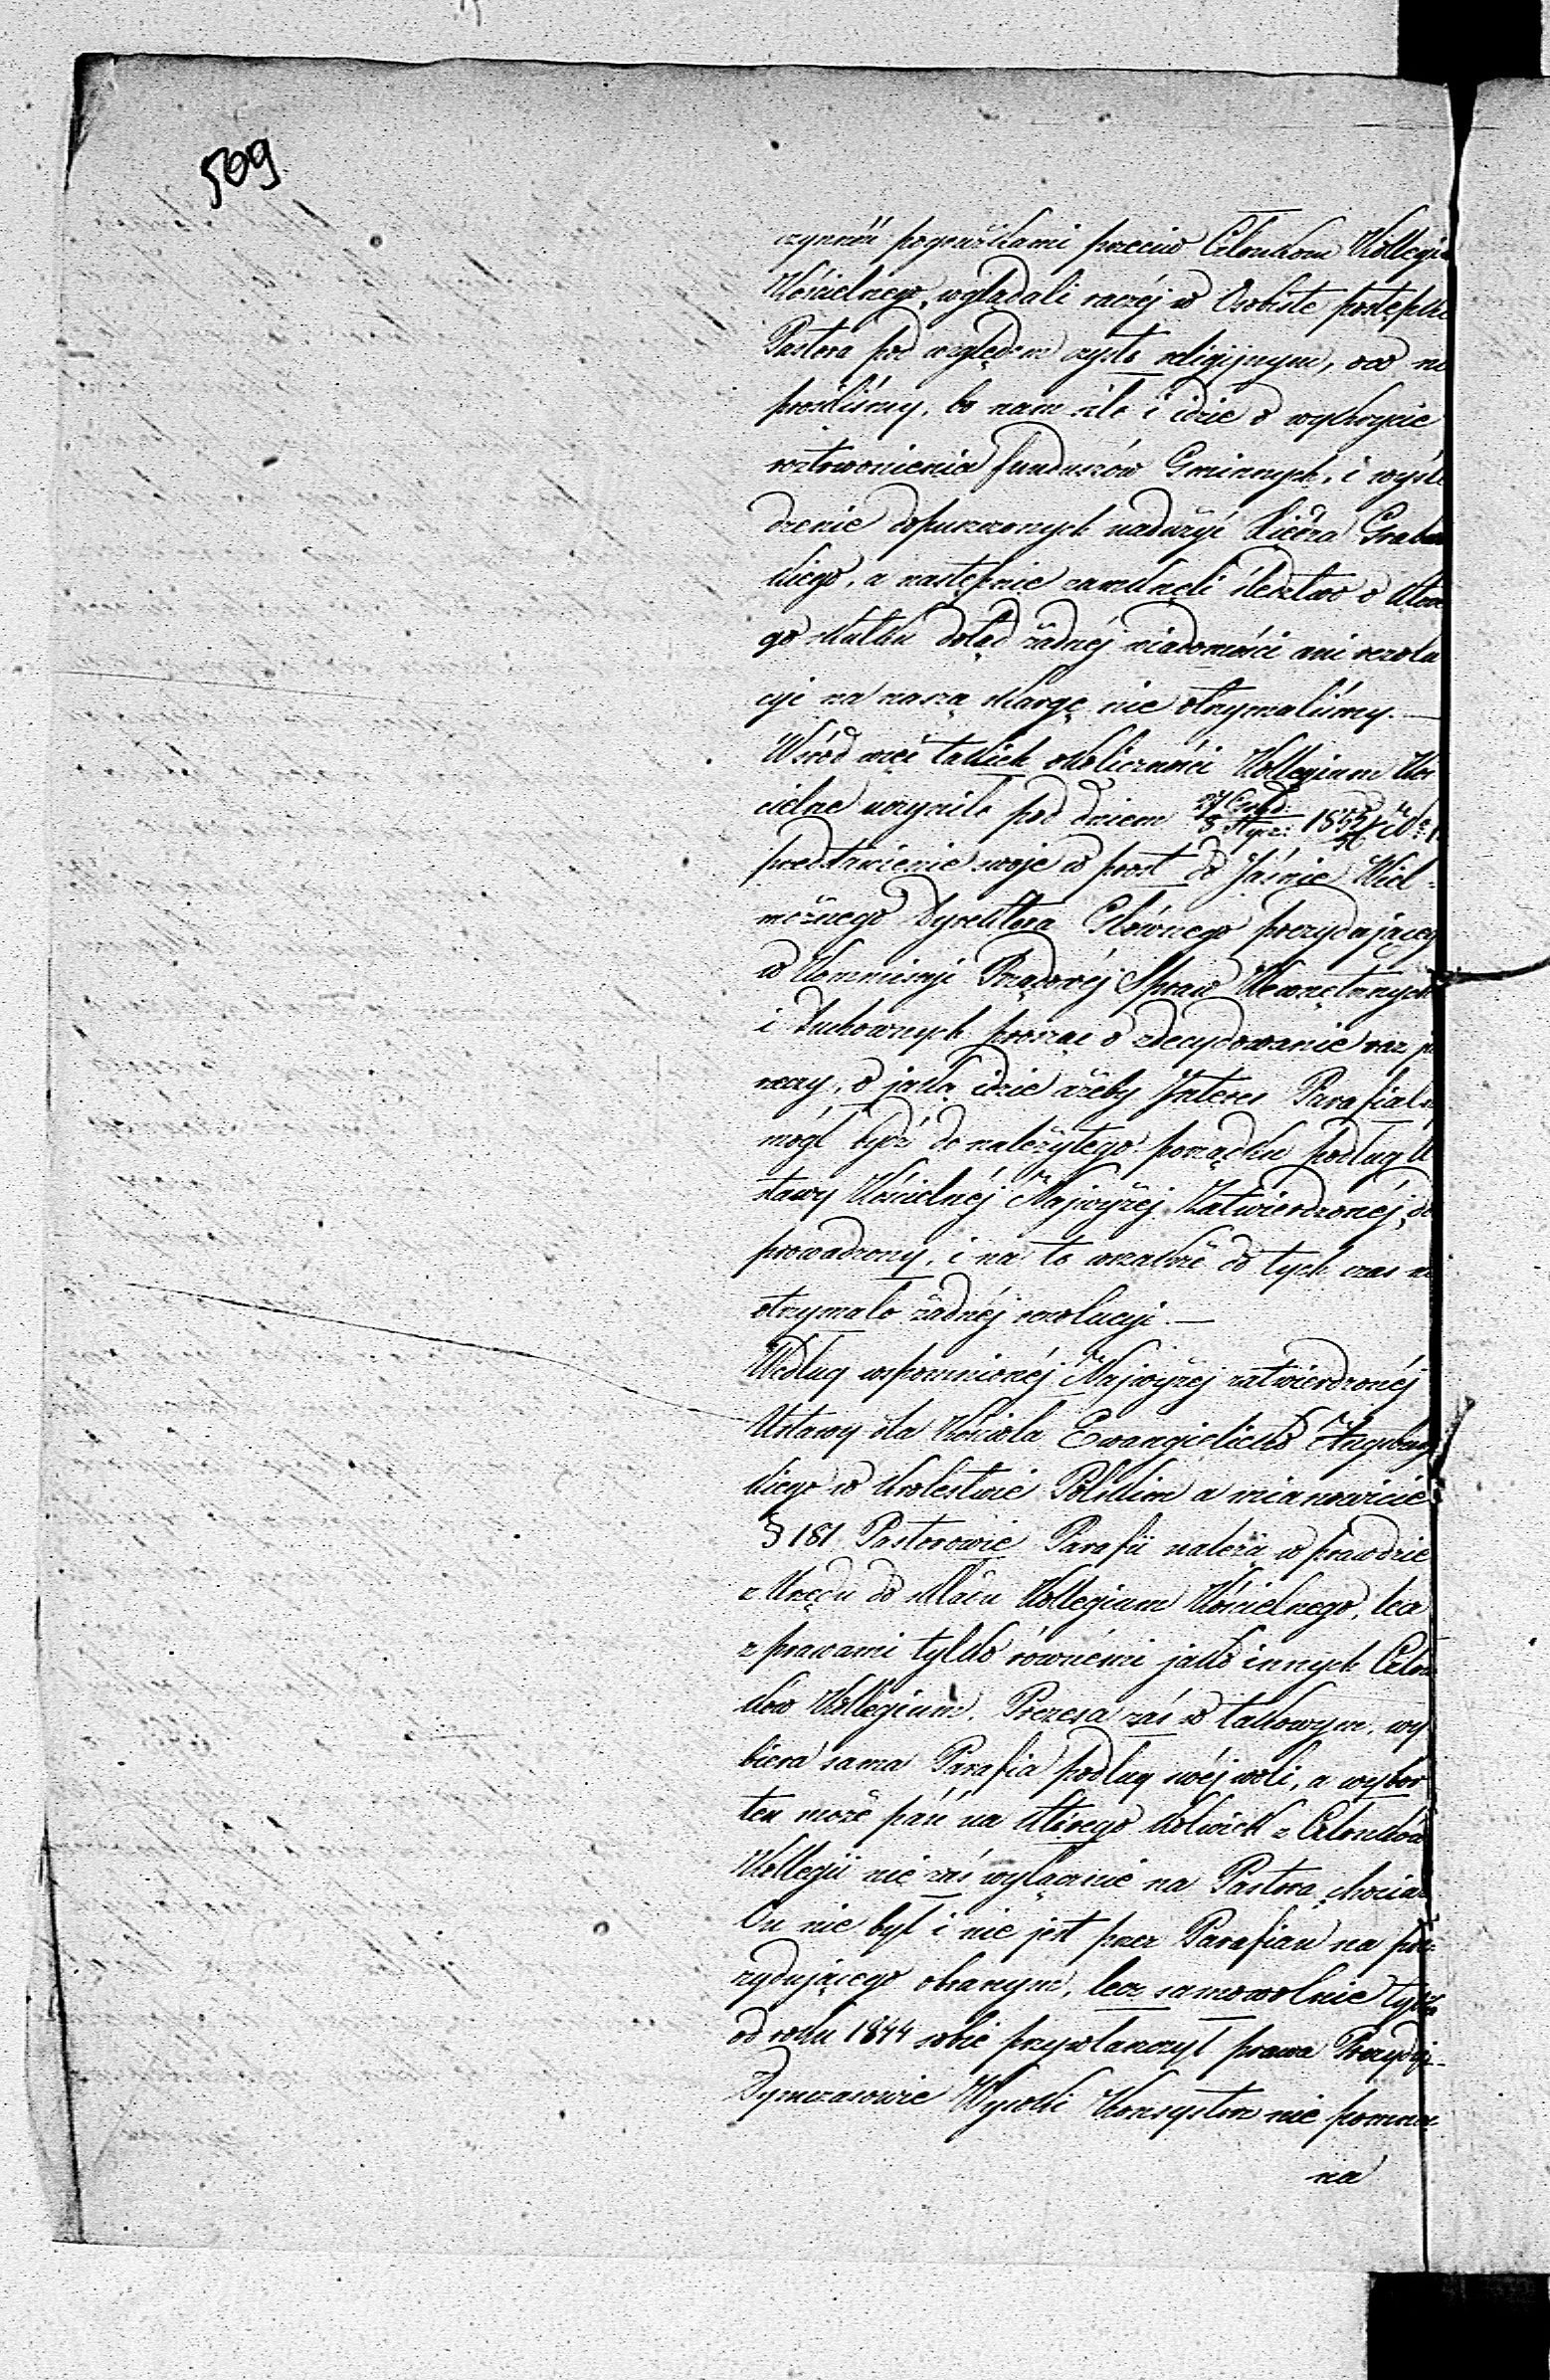 509
czynności pogróżkami przeciw Członkom Kollegi
Kościelnego, wglądali raczéj w Osobiste postępki
Pastora pod względem czysto religijnym, oco nie
prosiliśmy, bo nam szło i idzie o wykrycie
roztrwonienia funduszów Gminnych, i wyśle
dzenie dopuszczonych nadużyć Xiędza Grabow
skiego, a następnie zamknęli śledztwo o które
go skutku dotąd żadnéj wiadomości ani rezolu
cyi na naszą skargę nie otrzymaliśmy. —
Wśród więc takich okoliczności Kollegium Koś
cielne uczyniło pod dniem 27 Grud: / 8 Stycz: 1855/56
przedstawienie swoje w prost do Jaśnie Wiel-
możnego Dyrektora Głównego prezydującego
w Kommissyi Rządowéj Spraw Wewnętrznych
i Duchownych prosząc o zdecydowanie raz
rzeczy, o jaką idzie ażeby Interes Parafialny
mógł bydź do należytego porządku podług U
stawy Kościelnéj Najwyżej Zatwierdzonéj do
prowadzony, i na to wszakże do tych czas nie
otrzymało żadnéj rezolucyi. —
Według wspomnionéj Najwyżej zatwierdzonéj
Ustawy dla Kościoła Ewangielicko Augsburg
skiego w Królestwie Polskim a mianowicie
§ 181 Pastorowie Parafii należą w prawdzie
z Urzędu do składu Kollegium Kościelnego, lecz
z prawami tylko równémi jako innych Człon
ków Kollegium. Prezesa zaś w takowym, wy
biera sama Parafia podług swéj woli, a wybor
ten może paść na którego kolwiek z Członków
Kollegii nie zaś wyłącznie na Pastora, chociaż
On nie był i nie jest przez Parafian na pre-
zydującego obranym, lecz samowolnie tylko
od roku 1844 sobie przywłaszczył prawa
Tymczasowie Wysoki Konsystorz nie pomny
na